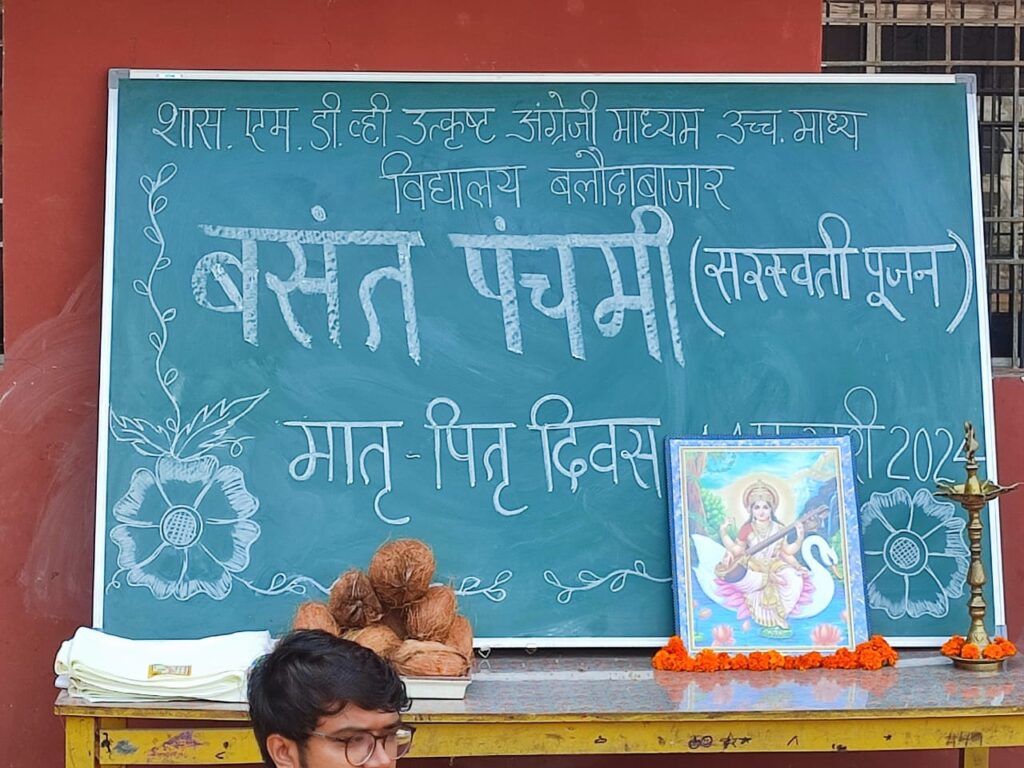 शास. एम. डी. व्ही उत्कृष्ट अंग्रेजी माध्यम उच्च. माध्य
विद्यालय बलौदाबाजार
बसंत पंचमी (सरस्वती पूजन)
मातृ - पितृ दिवस 2024